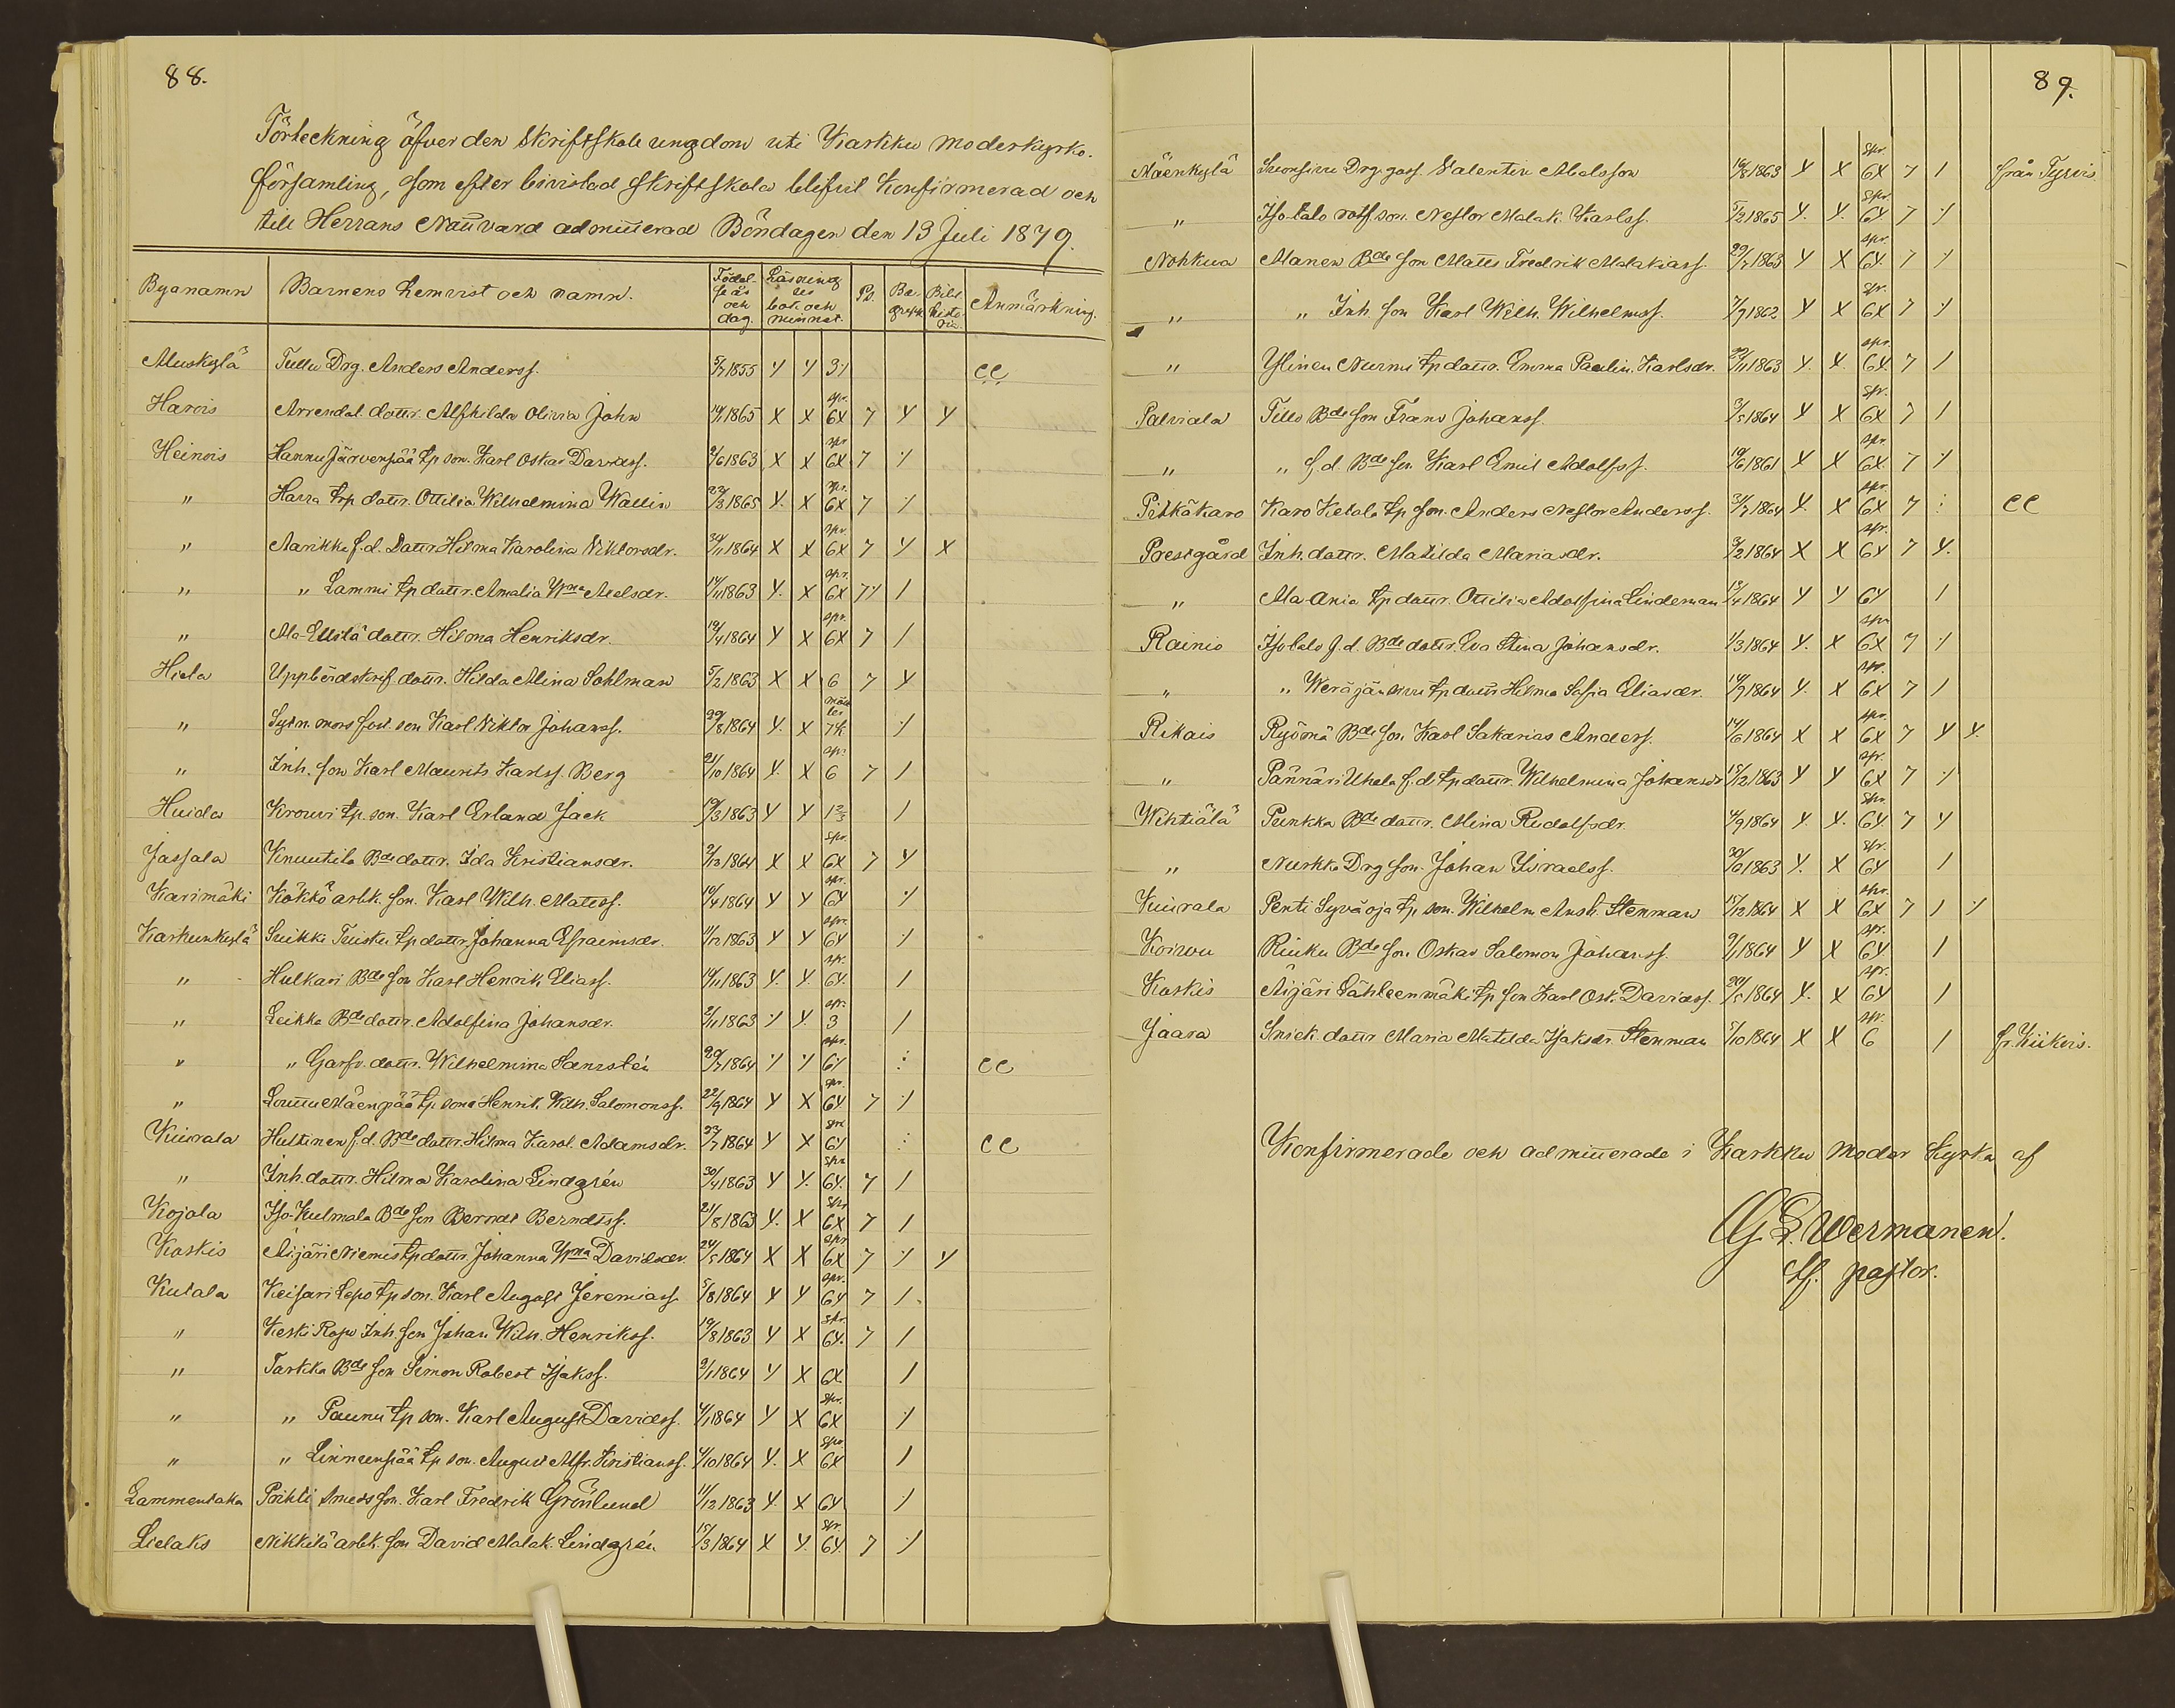 88.
Förteckning öfver den Skriftskole ungdom uti Karkku Moderkyrko-
församling, som efter bivistad Skriftskola blifvit Konfirmerad och
till Herrans Nattvard admitterad Böndagen den 13 Juli 1879.
Byanamn Barnens Hemvist och namn. Födelse år och dag. Läsning ur bok och minnet. Be-grepp Bibl. histo-ria. Anmärkning.
Aluskylä Tullu Drg. Anders Anderss. 5/7 1855 CC
Harois Arrendat. dottr. Alfhilda Olivia John 1865 spr. 6X 7
Heinois Hannu Järvenpää tp son. Karl Oskar Davidss. 2/6 1863 X X spr 6X 7
" Harra trp dottr. Ottilia Wilhelmina Wallin 22/3 1865 spr. 6X 7
" Aarikka f.d. Dottr. Hilma Karolina Viktorsdr. 24/11 1864 X X spr 6X 7
" " Lammi tp dottr. Amalia Wma Axelsdr. 14/11 1863 X spr. 6X
" Ala-Ellilä dottr. Hilma Henriksdr. 19/4 1864 X spr. 6X 7
Hiela Uppbördsskrif. dottr. Hilda Alina Sohlman 5/2 1863 X X 6 7
" Sytn. mors fost. son Karl Viktor Johanss. 29/8 1864 X
" Inh. son Karl Maurits Karlss. Berg 21/10 1864 X spr. 6 7
Huida Krouvi tp. son. Karl Erland Jack 19/3 1863
Jassala Knuutila Bde dottr. Ida Kristiansdr. 2/12 1864 X X spr. 6X 7
Karimäki Kökkö arbk. son. Karl Wilh. Mattss. 10/4 1864 spr.
Karkunkylä Suikki Tuisku tp dottr. Johanna Efraimsdr. 11/12 1863 spr.
" Hulkari Bde son Karl Henrik Eliass. 14/11 1863 spr.
" Leikko Bde dottr. Adolfina Johansdr. 2/11 1863 spr. 3
" " Garfv. dottr. Wilhelmina 29/7 1864 spr. CC
" Lounu Mäenpää tp son Henrik Wilh. Salomonss. 22/9 1864 X spr. 7
Kuirala Huttinen f.d. Bde dottr. Hilma Karol. Adamsdr. 23/7 1864 X spr CC
" Inh. dottr. Hilma Karolina Lindgrén 30/4 1863 spr 7
Kojola Iso-Kulmala Bde son Berndt Berndtss. 21/8 1863 X spr 6X 7
Koskis Äijäri Niemis tp dottr. Johanna Wma Davidsdr. 24/5 1864 X X spr 6X 7
Kutala Keisari Lepo tp son. Karl August Jeremiass. 5/8 1864 spr. 7
" Keski Ropo Inh. son Johan Wilh. Henrikss. 19/8 1863 X spr. 7
" Tarkka Bde son Simon Robert Isakss. 2/1 1864 X 6X
" " Paunu tp son. Karl August Davidss. 4/1 1864 X spr. 6X
" " Linnunpää tp son. August Alfr. Kristianss. 4/10 1864 X spr 6X
Lammentaka Poikti smeds son. Karl Fredrik Grönlund 11/12 1863 X
Lielaks Nikkilä arbk. son David Malak. Lindgrén 15/3 1864 X spr. 7
89.
Mäenkylä Drg. goss. Valentin Abelsson 16/8 1863 X spr 6X 7 från Tyrvis
" Isotalo rotf. son. Nestor Malak. Karlss. 5/2 1865 spr. 7
Nohkua Manen Bde son Matts Fredrik Malakiass. 29/7 1863 X spr. 7
" " Inh. son Karl Wilh. Wilhelmss. 7/9 1862 X spr. 6X 7
" Ylinen Nurmi tp dottr. Emma Paulin. Karlsdr. 29/11 1863 X spr. 7
Palviala Tillo Bde son Frans Johanss. 3/5 1864 X spr. 6X 7
" " f.d. Bde son Karl Emil Adolfss. 19/6 1861 X spr 6X 7
Pitkäkaro Karo Ketola tp son. Anders Nestor Anderss. 31/7 1864 X spr. 6X 7 CC
Prestgård Inh. dottr. Matilda Mariasdr. 9/2 1864 X X spr. 7
" Ala-Ania tp dottr. Ottilia Adolfina Lindeman 13/4 1864
Rainio Isotalo f.d. Bde dottr. Eva Stina Johansdr. 1/3 1864 X spr 6X 7
" " Weräjänsuu tp dottr. Hilma Sofia Eliasdr. 14/9 1864 X spr. 6X 7
Rikais Ryömä Bde son Karl Sakarias Anderss. 14/6 1864 X X spr. 6X 7
" Pännäri Uhala f.d. tp dottr. Wilhelmina Johansdr 15/12 1863 spr. 6X 7
Wihtiälä Punkka Bde dottr. Alina Rudolfsdr. 4/9 1864 spr. 7
" Nurkka Drg son. Johan Israelss. 30/6 1863 X spr.
Kuirala Penti Syväoja tp son. Wilhelm Ansh. Stenman 15/12 1864 X X spr. 6X 7
Koivou Riuku Bde son Oskar Salomon Johanss. 9/1 1864 X spr.
Koskis Äijäri Lähteenmäki tp son Karl Osk. Davidss. 20/5 1864 X spr.
Jaara Snick. dottr Maria Matilda Isaksdr. Stenman 7/10 1864 X X spr. 6 fr. Kiikois.
Konfirmerade och admitterade i Karkku Moder Kyrka af
G. L. Wermanen.
tf. pastor.